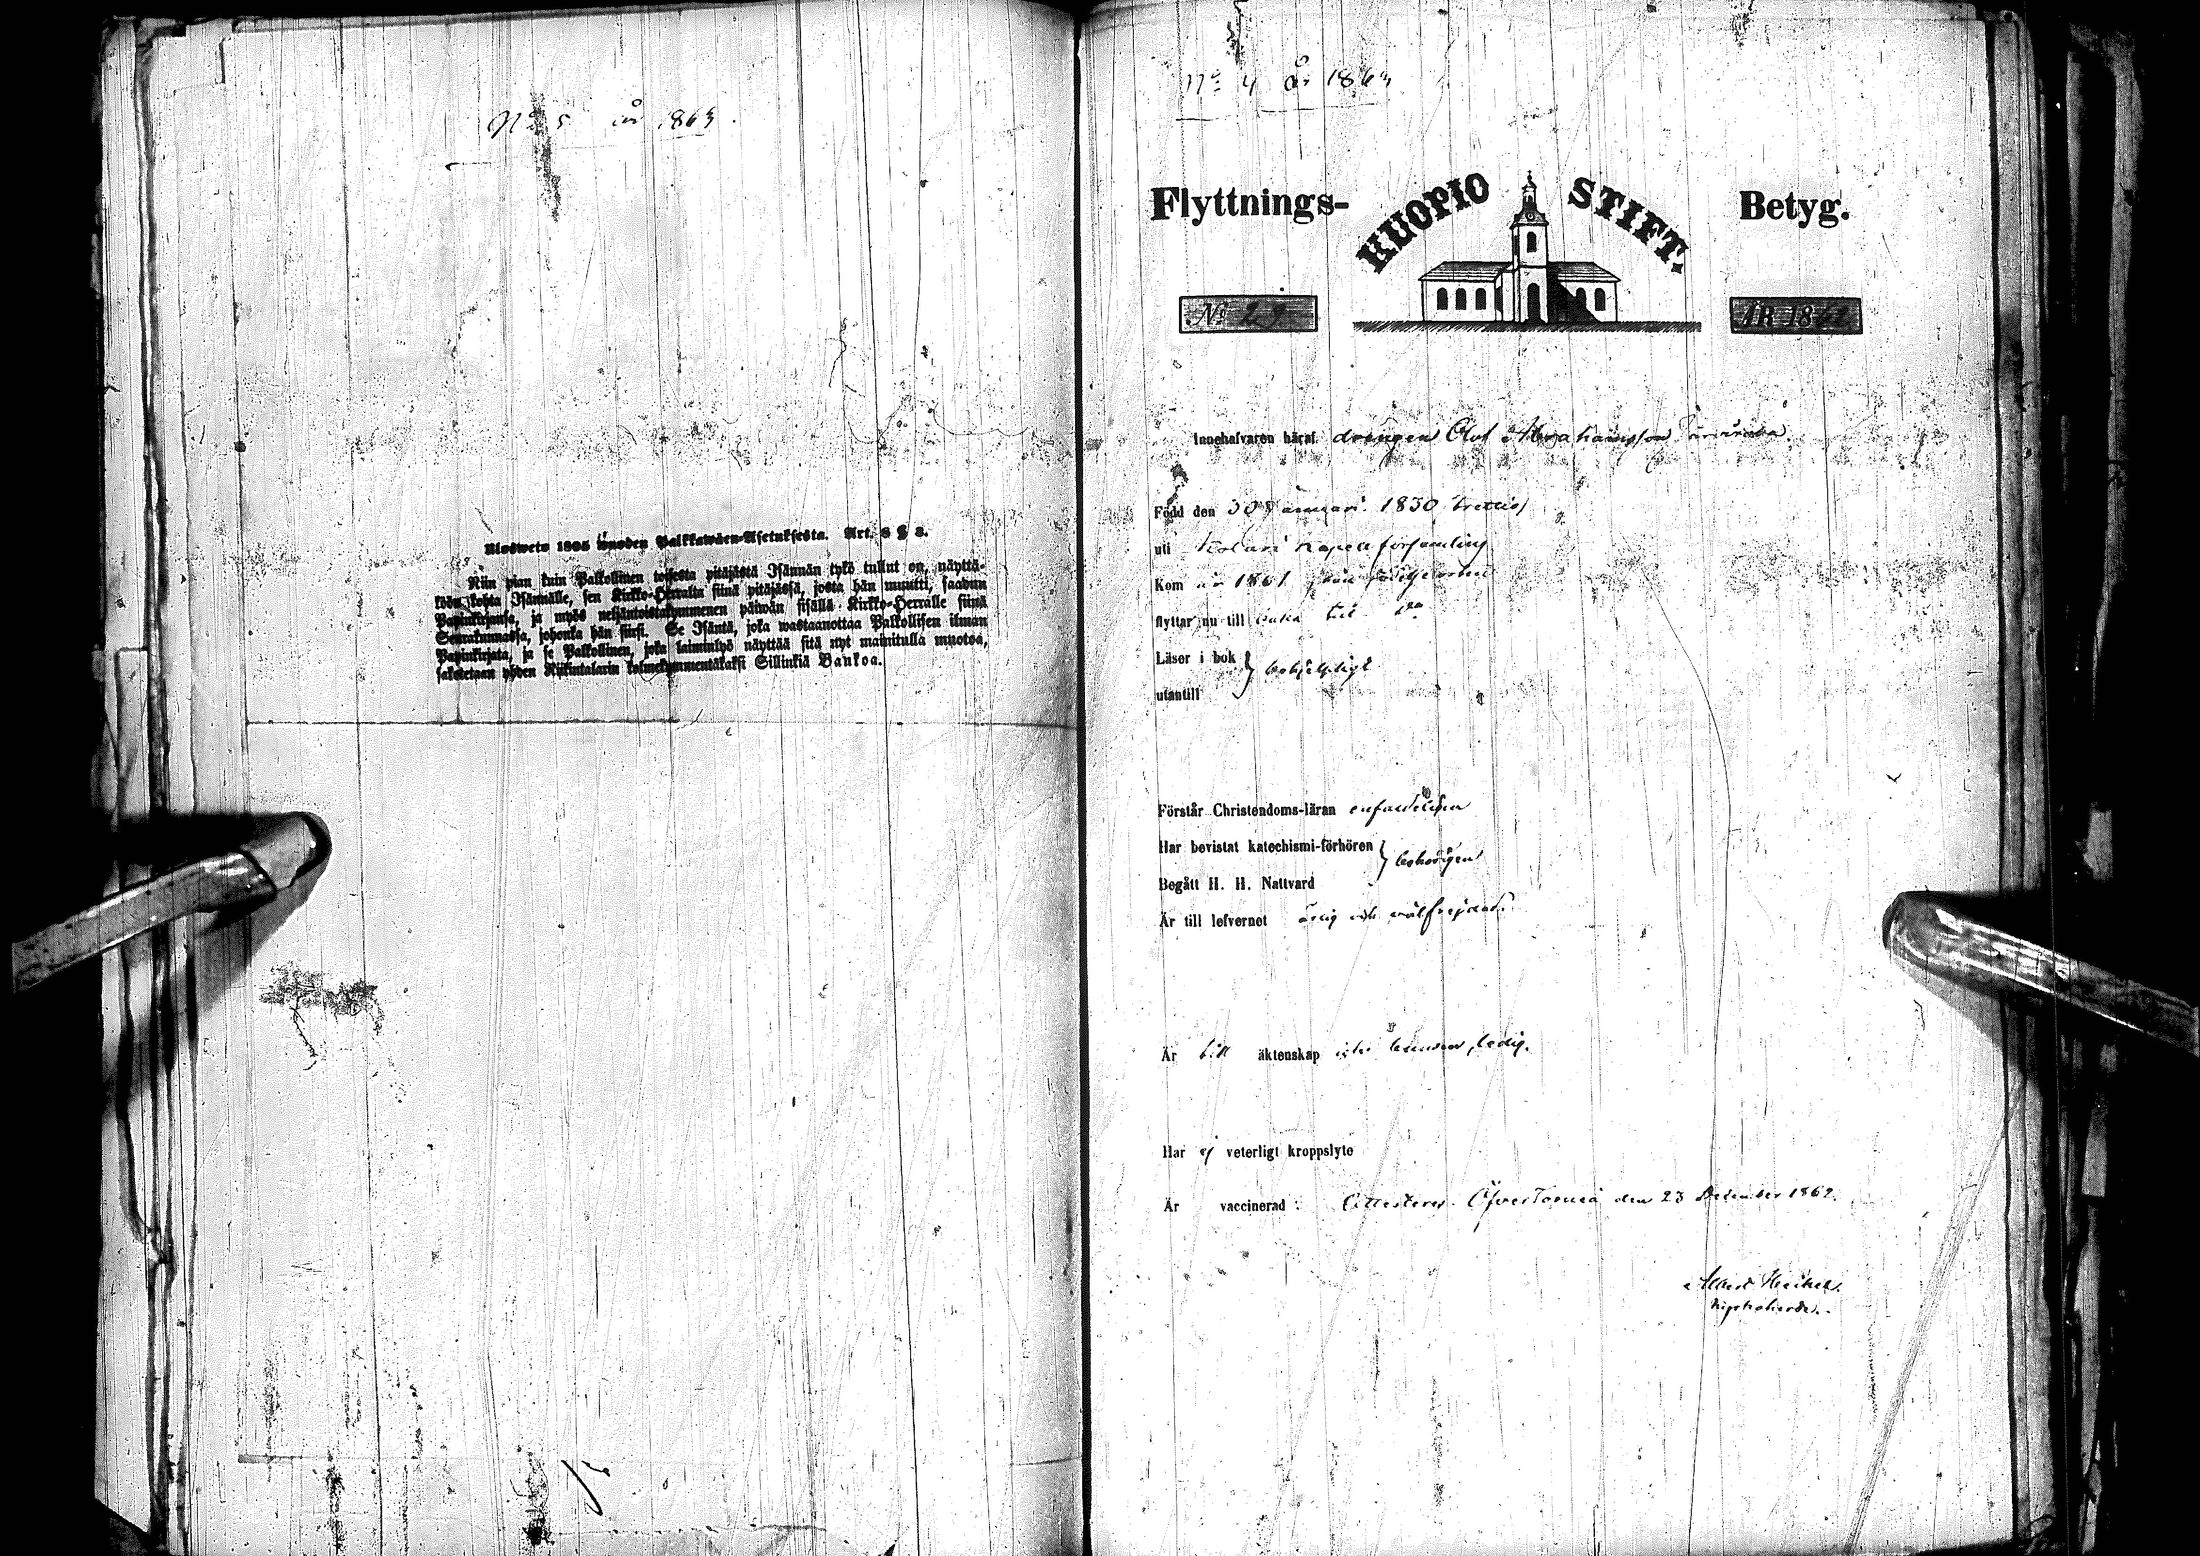 No 5 år 1863.
Ulosweto 1805 wuoden Palkkawäen-Asetuksesta. Art. 6 § 3.
Niin pian kuin Palkollinen toisesta pitäjästä Isännän tykö tullut on, näyttä-
köön kohta Isännälle, sen Kirkko-Herralta siinä pitäjässä, josta hän muutti, saadun
Papinkirjansa, ja myös neljäntoistakymmenen päiwän sisällä Kirkko-Herralle siinä
Seurakunnassa, johonka hän siirsi. Se Isäntä, joka wastaanottaa Palkollisen ilman
Papinkirjata, ja se Palkollinen, joka laiminlyö näyttää sitä nyt mainitulla muotoa,
sakotetaan yhden Riikintalarin kolmekymmentäkaksi Sillinkiä Bankoa.
No 4 år 1863
Flyttnings- KUOPIO STIFT. Betyg.
No 29 ÅR 1862
Innehafvaren häraf drängen Olof Abrahamsson
Född den 30 Januari 1830 trettio/
uti Kolari Kapellförsamling
Kom år 1861 från
flyttar nu till till do
Läser i bok } behjelpligt
utantill
Förstår Christendoms-läran enfaldeligen
Har bevistat katechismi-förhören } behörigen
Begått H. H. Nattvard
Är till lefvernet ärlig och välfrejdad.
Är till äktenskap ledig.
Har ej veterligt kroppslyte
Är vaccinerad: Attesteras ÖfverTorneå den 23 December 1862.
Albert Heikel.